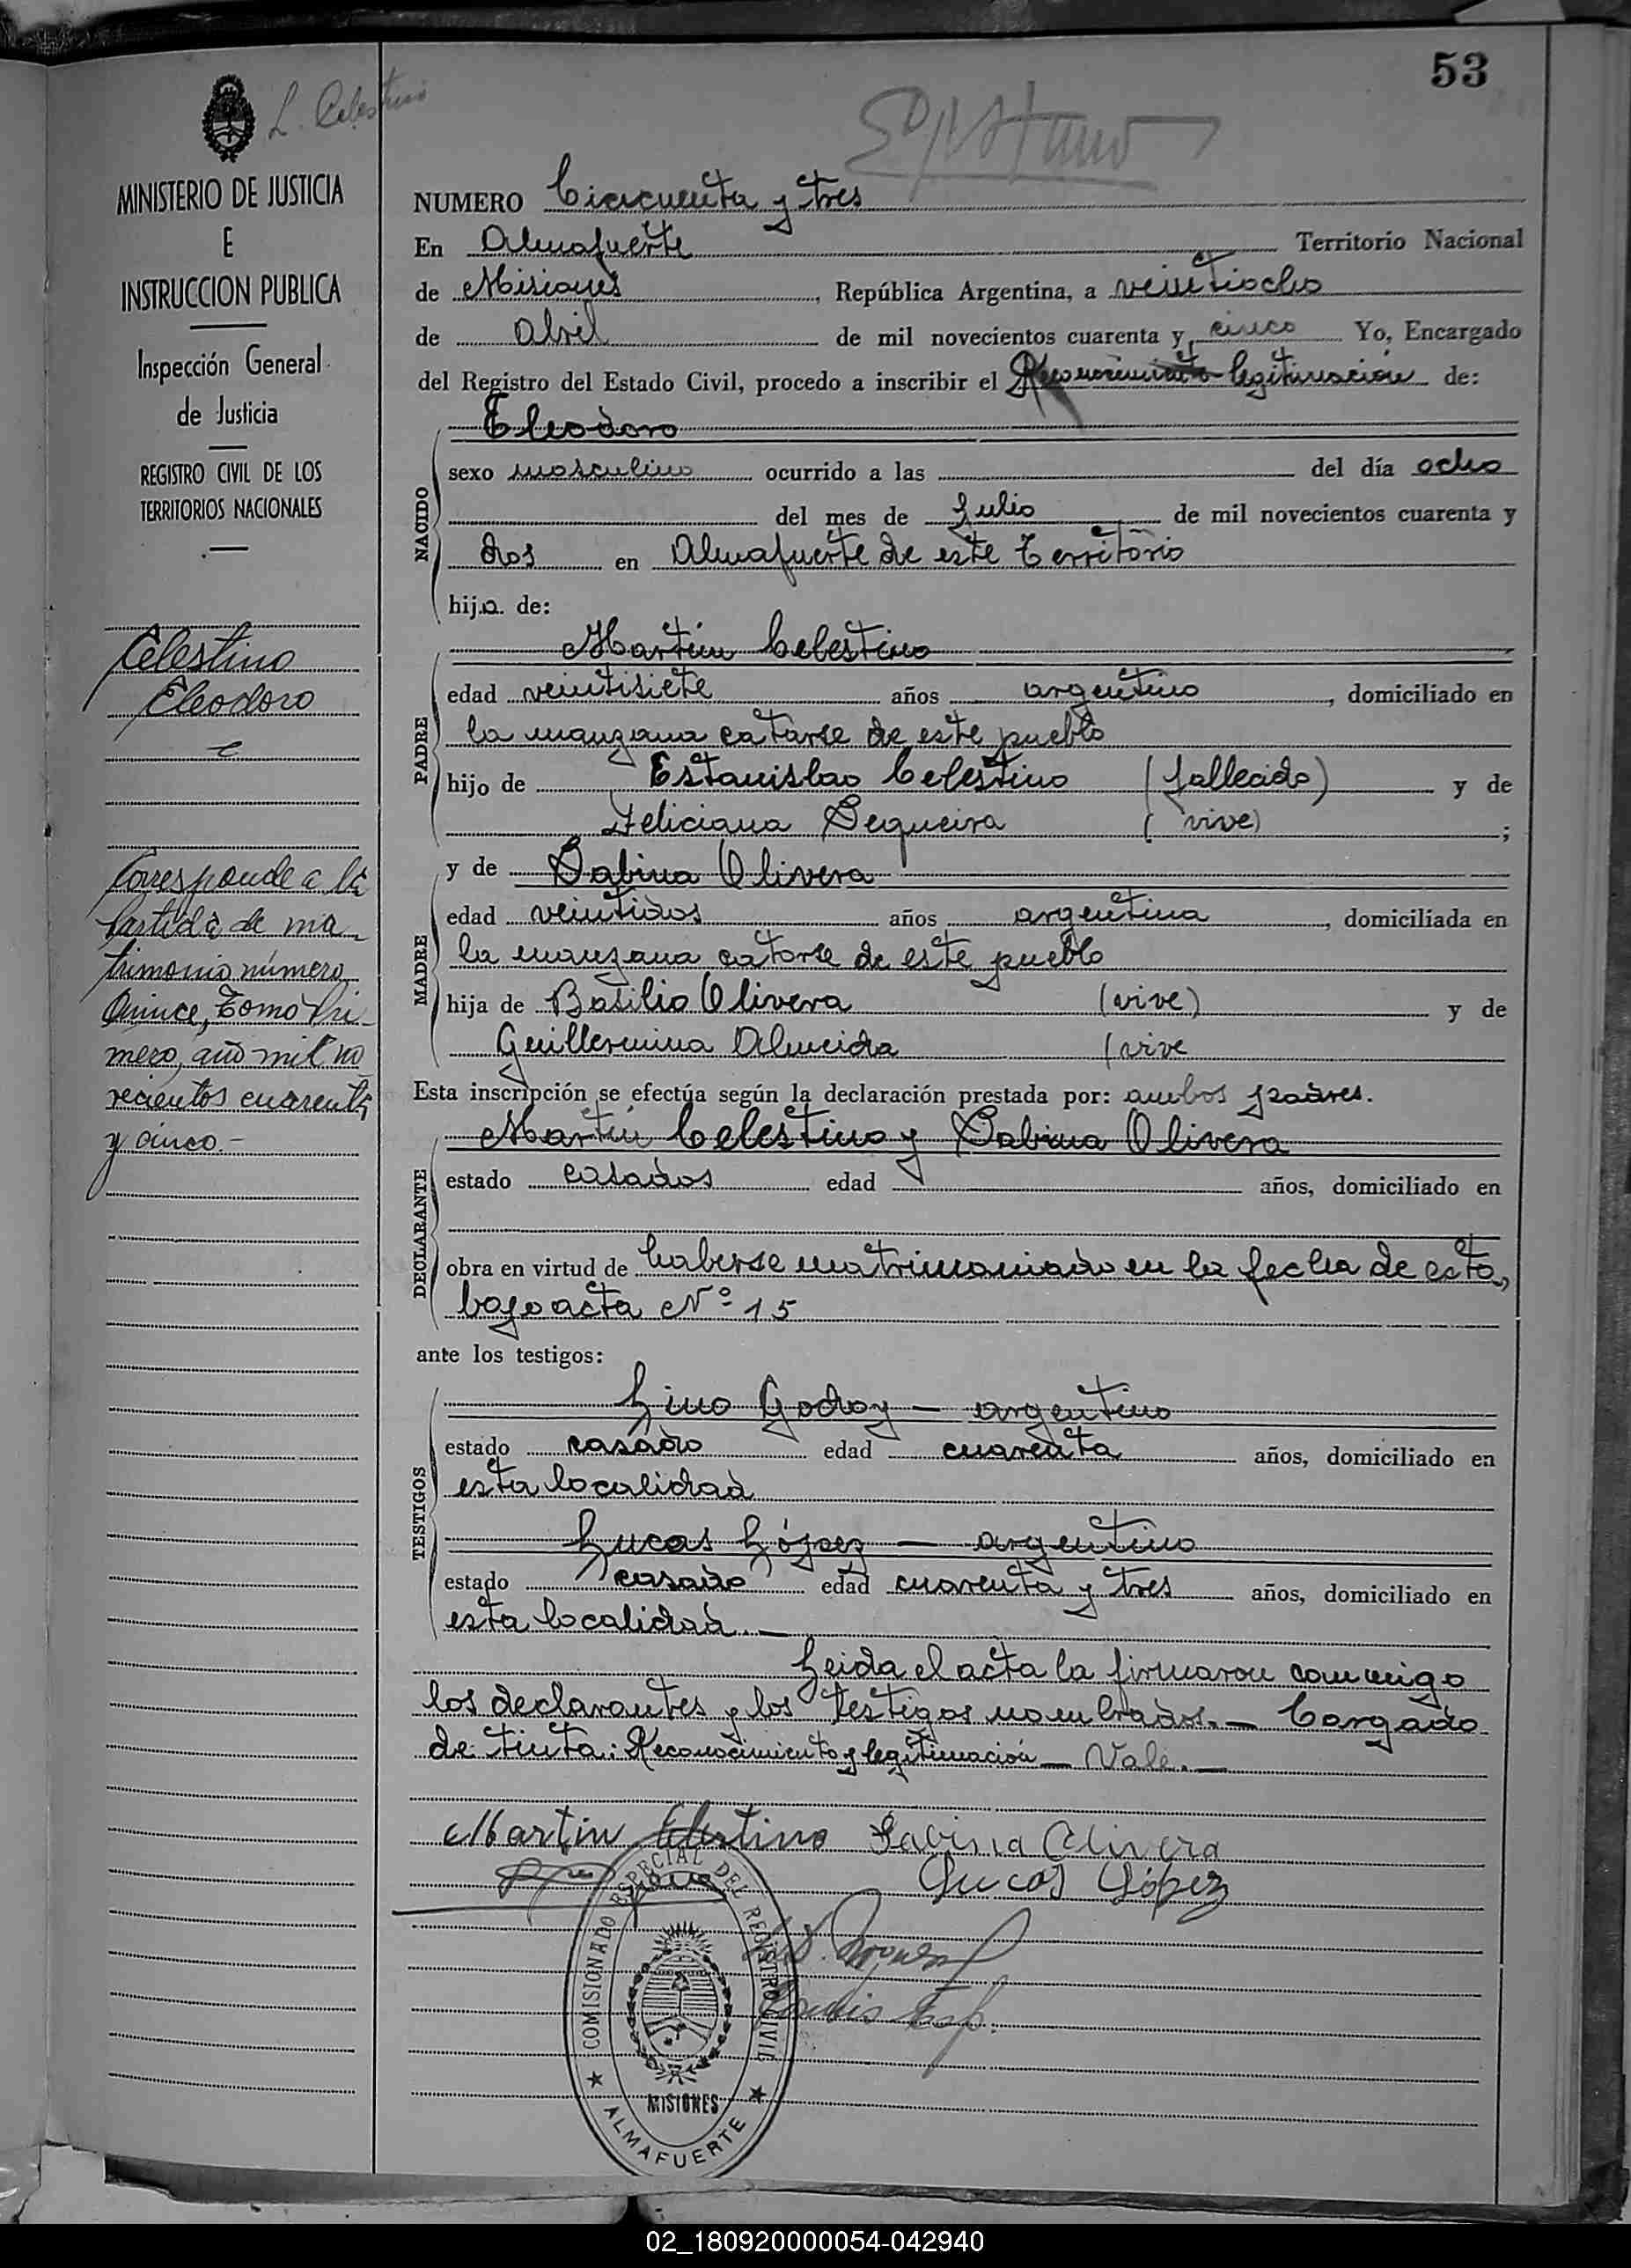 53
L. Celestino
MINISTERIO DE JUSTICIA
E
INSTRUCCION PUBLICA
Inspección General
de Justicia
REGISTRO CIVIL DE LOS
TERRITORIOS NACIONALES
Celestino
Eleodoro
Corresponde a la
Partida de ma-
trimonio número
Quince, Tomo Pri-
mero, año mil no
vecientos cuarenta
y cinco.-
NUMERO Cincuenta y tres
En Almafuerte Territorio Nacional
de Misiones, República Argentina, a veintiocho
de Abril de mil novecientos cuarenta y cinco Yo, Encargado
del Registro del Estado Civil, procedo a inscribir el Reconocimiento legitimación de:
NACIDO
Eleodoro
sexo masculino ocurrido a las del día ocho
del mes de Julio de mil novecientos cuarenta y
dos en Almafuerte de este Territorio
hijo de:
PADRE
Martín Celestino
edad veintisiete años argentino, domiciliado en
la manzana catorce de este pueblo
hijo de Estanislao Celestino (fallecido) y de
Feliciana Sequeira (vive) ;
MADRE
y de Sabina Olivera
edad veintidos años argentina, domiciliada en
la manzana catorce de este pueblo
hija de Basilio Olivera (vive) y de
Guillermina Almeida (vive
Esta inscripción se efectúa según la declaración prestada por: ambos padres.
DECLARANTE
Martín Celestino y Sabina Olivera
estado casados edad años, domiciliado en
obra en virtud de haberse matrimoniado en la fecha de esta,
bajo acta Nº 15
ante los testigos:
TESTIGOS
Lino Godoy — argentino
estado casado edad cuarenta años, domiciliado en
esta localidad
Lucas López — argentino
estado casado edad cuarenta y tres años, domiciliado en
esta localidad.—
Leida el acta la firmaron conmigo
los declarantes y los testigos nombrados.— Cargado
de tinta: Reconocimiento y legitimación — Vale.—
Martin Celestino Sabina Olivera
Lucas López
COMISIONADO ESPECIAL DEL REGISTRO CIVIL
MISIONES
★ ALMAFUERTE ★
02_180920000054-042940